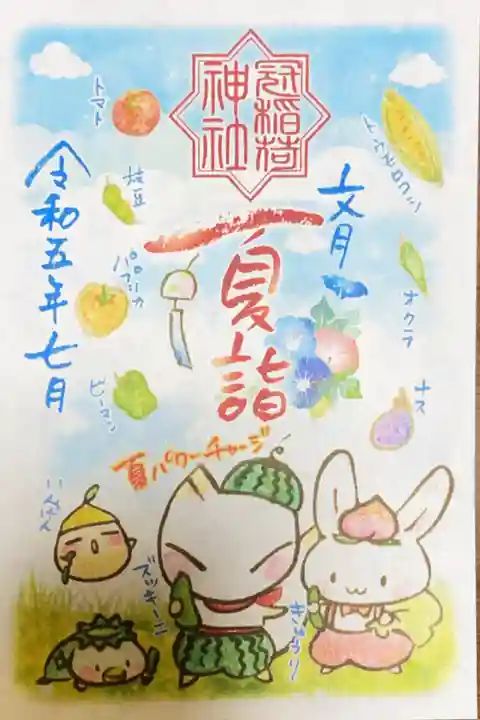 冠稲荷
神社
夏詣
文月
令和五年七月
トマト
枝豆
パプリカ
ピーマン
いんげん
トウモロコシ
オクラ
ナス
夏パワーチャージ
ズッキーニ
きゅうり